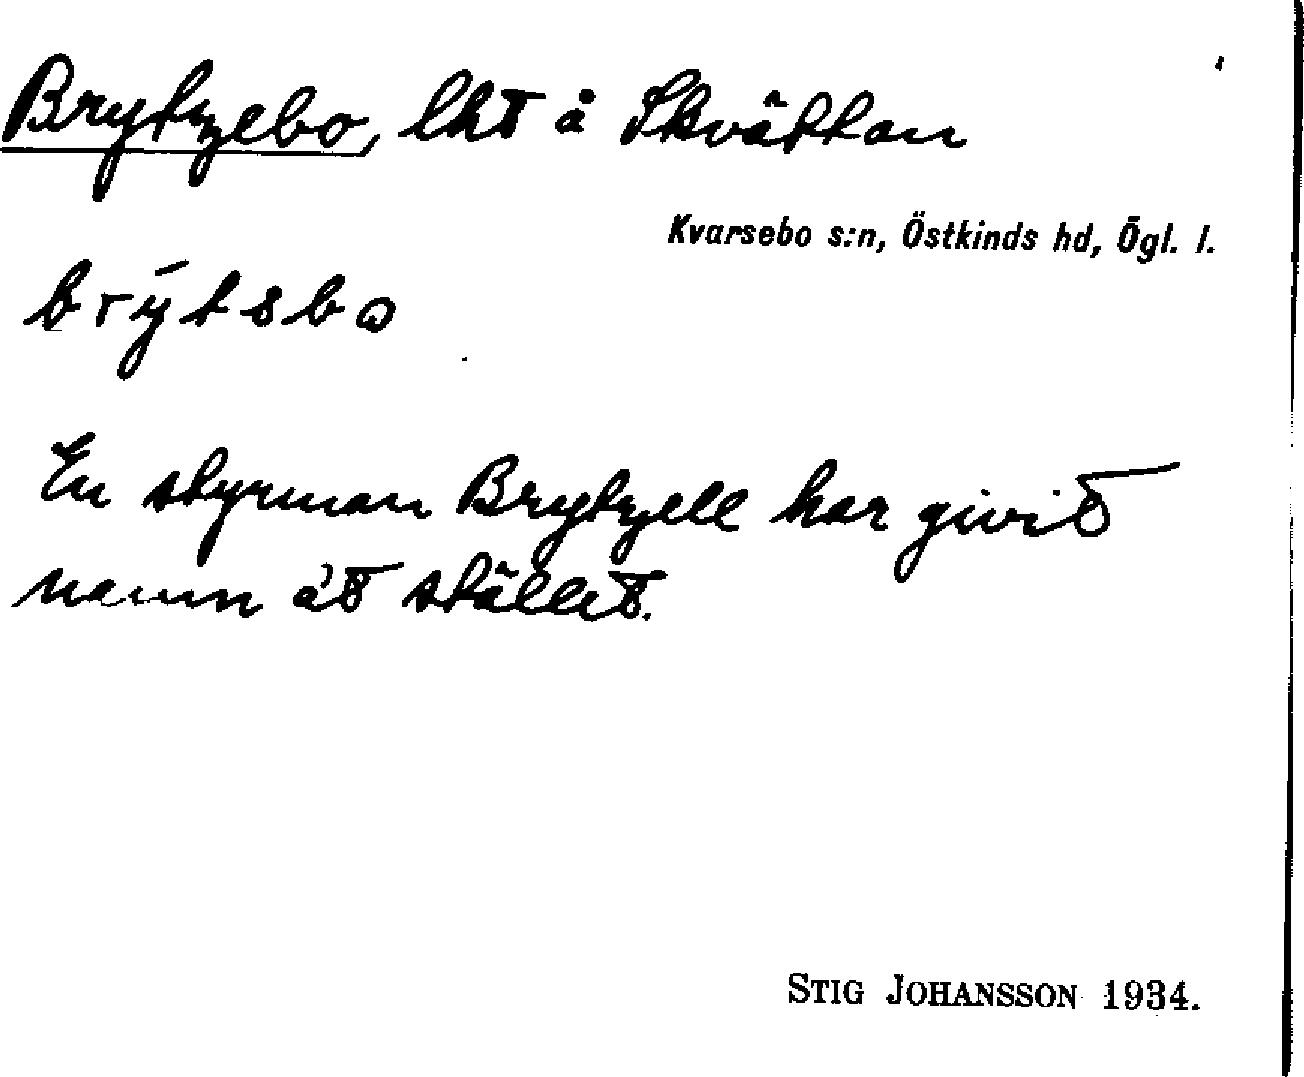 Brytzebo, lht å Skvättan
Kvarsebo s:n, Östkinds hd, Ögl. l.
brȳtsbo
En styrman Brytzell har givit
namn åt stället.
STIG JOHANSSON 1934.